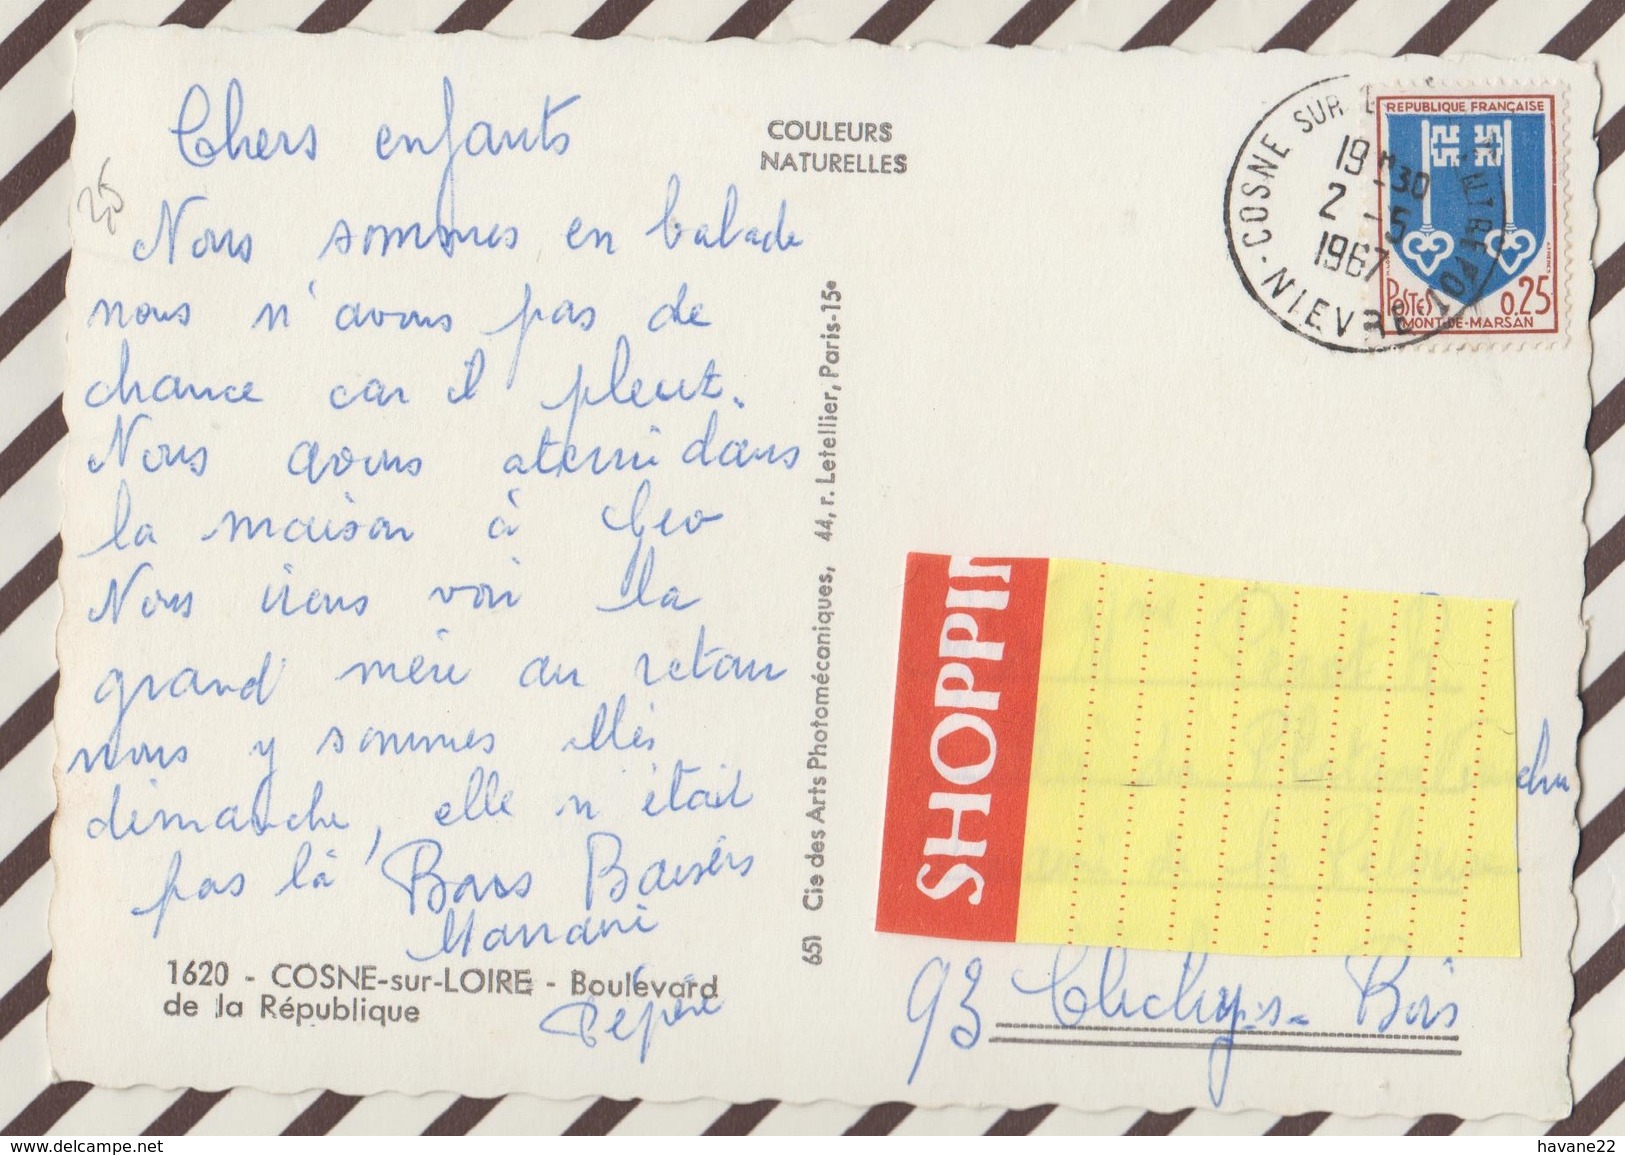 Chers enfants
Nous sommes en balade
nous n'avons pas de
chance car il pleut.
Nous avons aterri dans
la maison à Geo
Nous irons voir la
grand mère au retour
nous y sommes allés
dimanche, elle n'était
pas là Bons Baisers
Pépère
1620 - COSNE-sur-LOIRE - Boulevard
de la République
COULEURS
NATURELLES
651 Cie des Arts Photomécaniques, 44, r. Letellier, Paris-15e
COSNE SUR
19 H -30
2 -5
1967
NIEVRE
REPUBLIQUE FRANÇAISE
POSTES 0.25
MONT-DE-MARSAN
SHOPPIN
93 Clichy-s-Bois
25
havane22
delcampe.net